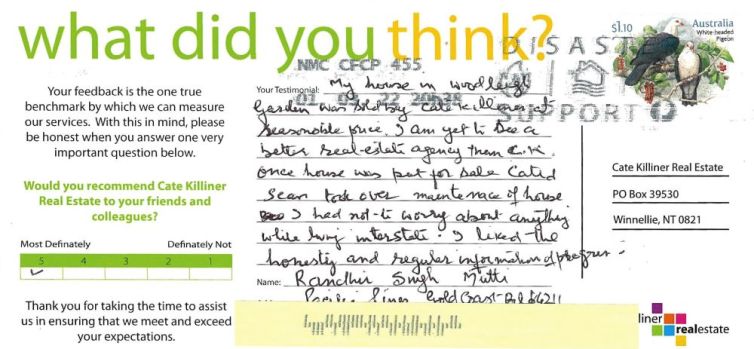 what did you think?
Your feedback is the one true
benchmark by which we can measure
our services. With this in mind, please
be honest when you answer one very
important question below.
Would you recommend Cate Killiner
Real Estate to your friends and
colleagues?
Most Definately Definately Not
5 4 3 2 1
Thank you for taking the time to assist
us in ensuring that we meet and exceed
your expectations.
NMC CFCP 455
Your Testimonial: My house in woodleigh
Garden was sold by Cate Killiner at
reasonable price. I am yet to see a
better real-estate agency than C.K.
once house was put for sale Cate
Sean took over maintenace of house
I had not to worry about anything
while living interstate. I liked the
honesty and regular information of progress.
Name: Randhir Singh Mutti
Pacific Pines Gold Coast
DISASTE
SUPPORT
$1.10
Australia
White-headed
Pigeon
Cate Killiner Real Estate
PO Box 39530
Winnellie, NT 0821
lliner
realestate